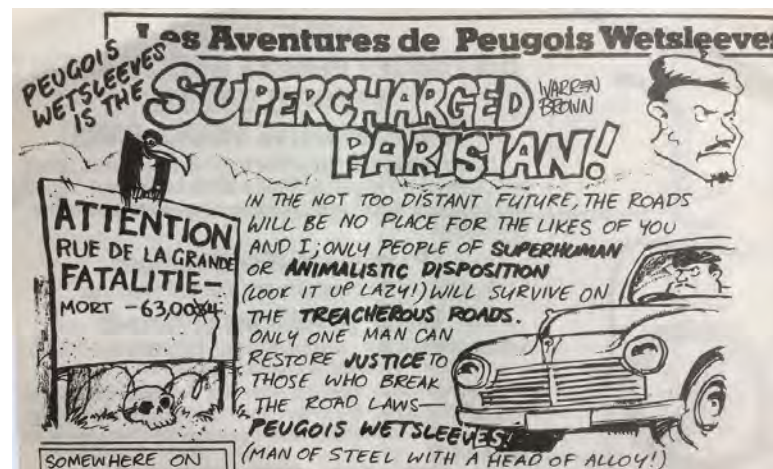 Les Aventures de Peugois Wetsleeves
PEUGOIS
WETSLEEVES
IS THE
SUPERCHARGED
PARISIAN!
WARREN
BROWN
ATTENTION
RUE DE LA GRANDE
FATALITIE-
MORT - 63,00
IN THE NOT TOO DISTANT FUTURE, THE ROADS
WILL BE NO PLACE FOR THE LIKES OF YOU
AND I; ONLY PEOPLE OF SUPERHUMAN
OR ANIMALISTIC DISPOSITION
(LOOK IT UP LAZY!) WILL SURVIVE ON
THE TREACHEROUS ROADS.
ONLY ONE MAN CAN
RESTORE JUSTICE TO
THOSE WHO BREAK
THE ROAD LAWS—
PEUGOIS WETSLEEVES!
(MAN OF STEEL WITH A HEAD OF ALLOY!)
SOMEWHERE ON